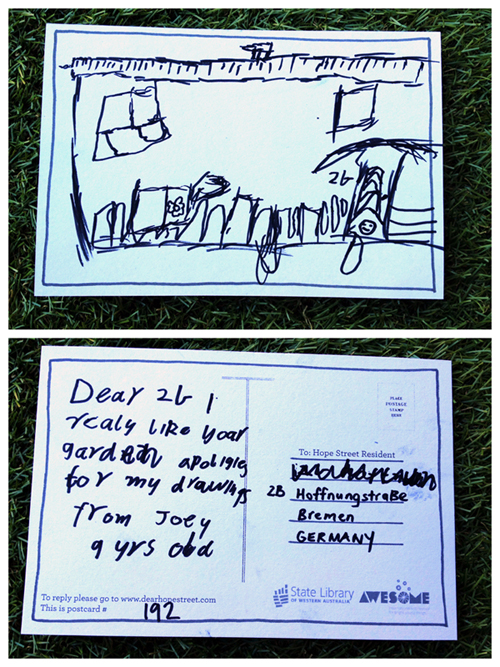 2b
Dear 2b I
realy like your
garden apoligies
for my drawings
from Joey
9 yrs old
To reply please go to www.dearhopestreet.com
This is postcard # 192
PLACE
POSTAGE
STAMP
HERE
To: Hope Street Resident
2B Hoffnungstraße
Bremen
GERMANY
State Library
OF WESTERN AUSTRALIA
AWESOME